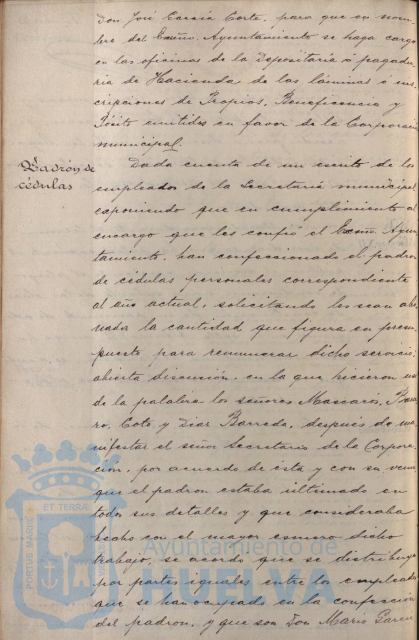 Don José García Corte, para que en nom-
bre del Excmo. Ayuntamiento se haga cargo
en las oficinas de la Depositaría ó pagadu-
ría de Hacienda de las láminas é ins-
cripciones de Propios, Beneficencia y
Pósito emitidas en favor de la Corporación
municipal.
Padrón de
cédulas
Dada cuenta de un escrito de los
empleados de la Secretaría municipal
exponiendo que en cumplimiento al
encargo que les confió el Excmo. Ayun-
tamiento, han confeccionado el padrón
de cédulas personales correspondiente
al año actual, solicitando les sean abo-
nados la cantidad que figura en presu-
puesto para remunerar dicho servicio,
abierta discusión, en la que hicieron uso
de la palabra los señores Mascarós,
ro, Coto y Díaz Barreda, después de ma-
nifestar el señor Secretario de la Corpora-
ción, por acuerdo de ésta y con su venia
que el padrón estaba ultimado en
todos sus detalles y que consideraba
hecho con el mayor esmero dicho
trabajo, se acordó que se distribuya
por partes iguales entre los empleados
que se han ocupado en la confección
del padrón, y que son Don Mario García
PORTUS MARIS
ET TERRA
Ayuntamiento de
HUELVA